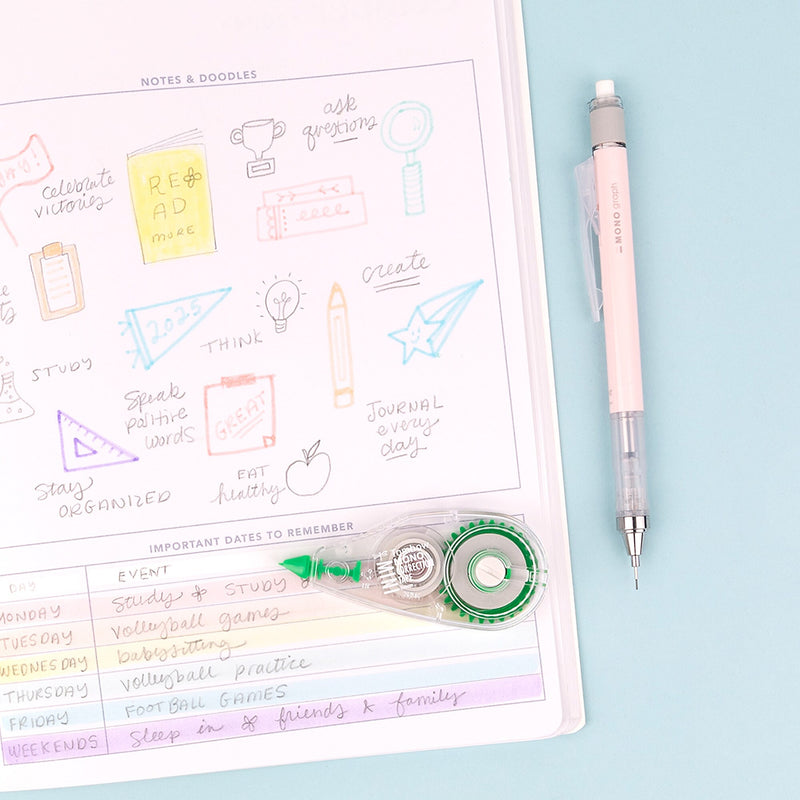 NOTES & DOODLES
celebrate
victories
READ
MORE
ask
questions
create
2025
THINK
STUDY
Speak
positive
words
GREAT
JOURNAL
every
day
Stay
ORGANIZED
EAT
healthy
IMPORTANT DATES TO REMEMBER
DAY EVENT
MONDAY Study & STUDY
TUESDAY Volleyball games
WEDNESDAY babysitting
THURSDAY Volleyball practice
FRIDAY FOOTBALL GAMES
WEEKENDS Sleep in & friends & family
MONO graph
Tombow
MONO
COLLECTION